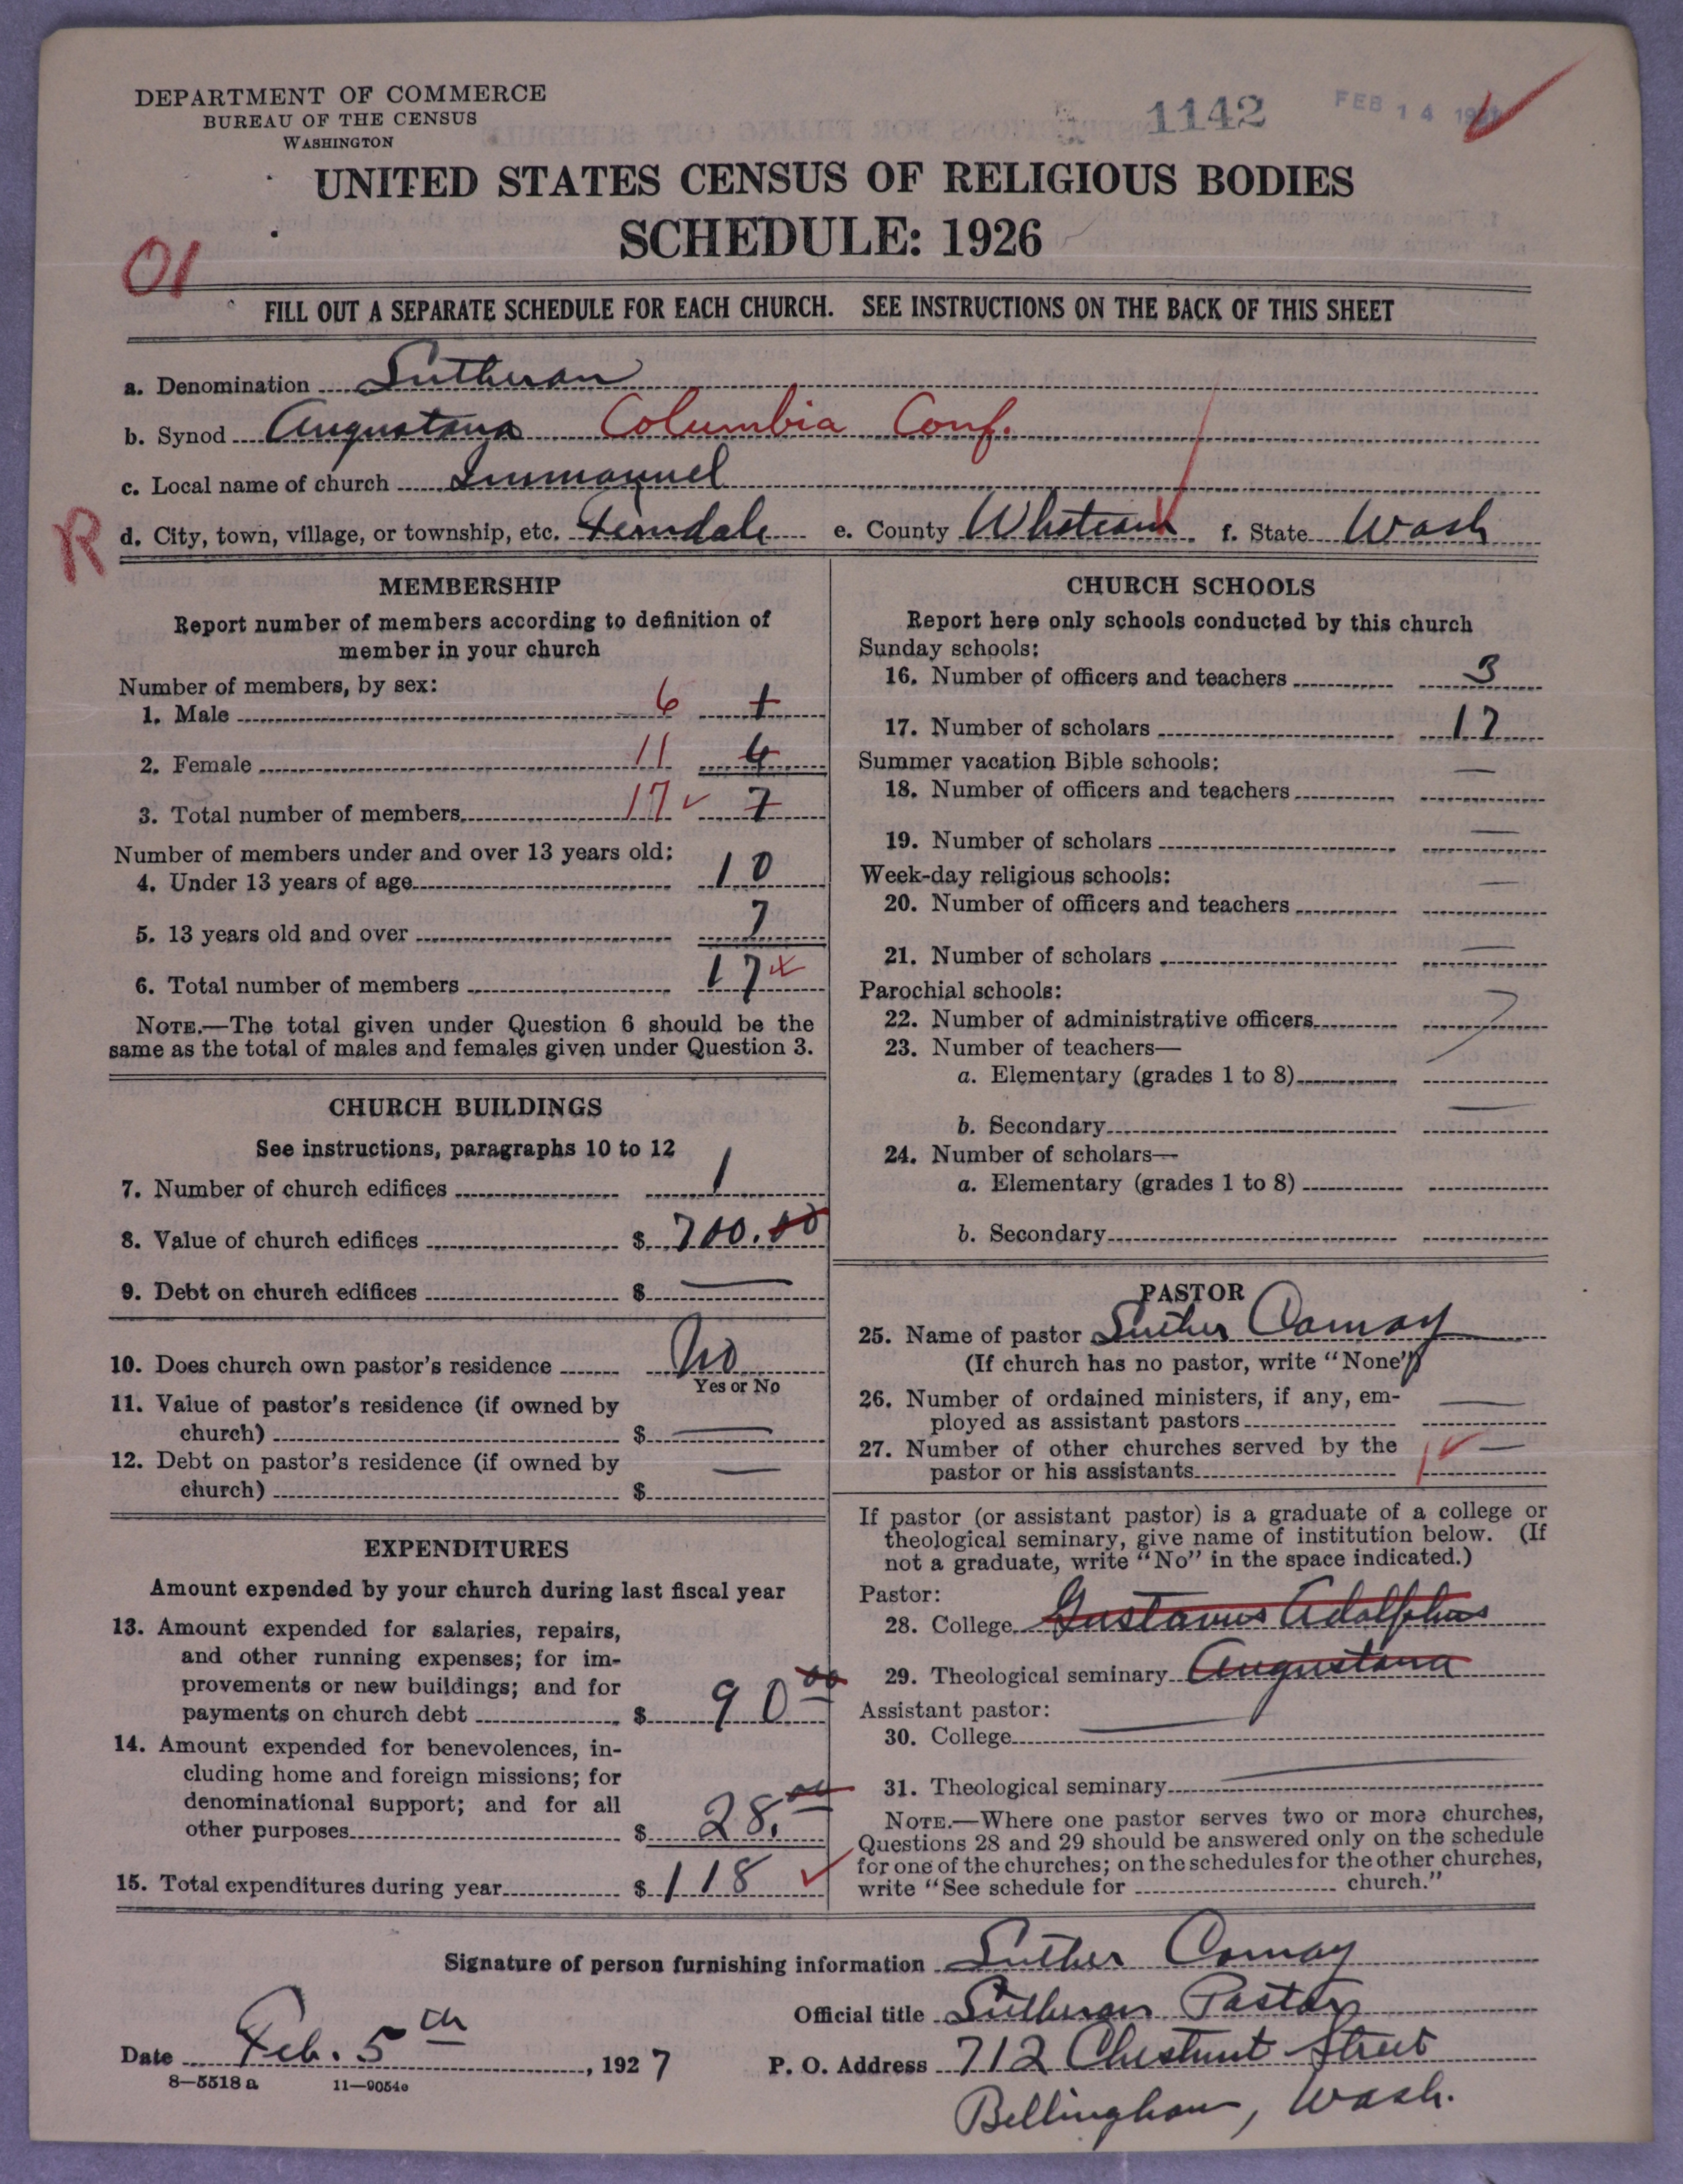 DEPARTMENT OF COMMERCE
BUREAU OF THE CENSUS
WASHINGTON
1142
FEB 14
UNITED STATES CENSUS OF RELIGIOUS BODIES
SCHEDULE: 1926
01
FILL OUT A SEPARATE SCHEDULE FOR EACH CHURCH. SEE INSTRUCTIONS ON THE BACK OF THIS SHEET
a. Denomination Lutheran
b. Synod Augustana Columbia Conf.
c. Local name of church Immanuel
R
d. City, town, village, or township, etc. Ferndale e. County f. State Wash
MEMBERSHIP
Report number of members according to definition of
member in your church
Number of members, by sex:
1. Male 6
2. Female 11 4
3. Total number of members 17 7
Number of members under and over 13 years old:
4. Under 13 years of age 10
5. 13 years old and over 7
6. Total number of members 17
NOTE.—The total given under Question 6 should be the
same as the total of males and females given under Question 3.
CHURCH BUILDINGS
See instructions, paragraphs 10 to 12
7. Number of church edifices 1
8. Value of church edifices $ 700.00
9. Debt on church edifices $ —
10. Does church own pastor's residence No
Yes or No
11. Value of pastor's residence (if owned by
church) $ —
12. Debt on pastor's residence (if owned by
church) $ —
EXPENDITURES
Amount expended by your church during last fiscal year
13. Amount expended for salaries, repairs,
and other running expenses; for im-
provements or new buildings; and for
payments on church debt $ 90 00
14. Amount expended for benevolences, in-
cluding home and foreign missions; for
denominational support; and for all
other purposes $ 28. 00
15. Total expenditures during year $ 118
CHURCH SCHOOLS
Report here only schools conducted by this church
Sunday schools:
16. Number of officers and teachers 3
17. Number of scholars 17
Summer vacation Bible schools:
18. Number of officers and teachers —
19. Number of scholars —
Week-day religious schools:
20. Number of officers and teachers —
21. Number of scholars —
Parochial schools:
22. Number of administrative officers
23. Number of teachers—
a. Elementary (grades 1 to 8)
b. Secondary —
24. Number of scholars—
a. Elementary (grades 1 to 8)
b. Secondary
PASTOR
25. Name of pastor Luther
(If church has no pastor, write "None")
26. Number of ordained ministers, if any, em-
ployed as assistant pastors —
27. Number of other churches served by the
pastor or his assistants 1 —
If pastor (or assistant pastor) is a graduate of a college or
theological seminary, give name of institution below. (If
not a graduate, write "No" in the space indicated.)
Pastor:
28. College Gustavus Adolphus
29. Theological seminary Augustana
Assistant pastor:
30. College —
31. Theological seminary —
NOTE.—Where one pastor serves two or more churches,
Questions 28 and 29 should be answered only on the schedule
for one of the churches; on the schedules for the other churches,
write "See schedule for church."
Signature of person furnishing information Luther
Official title Lutheran Pastor
Date Feb. 5th, 1927
P. O. Address 712 Chestnut Street
Bellingham, Wash.
8—5518 a 11—9054